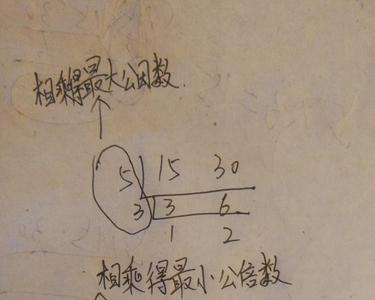 相乘得最大公因数
5 15 30
3 3 6
1 2
相乘得最小公倍数